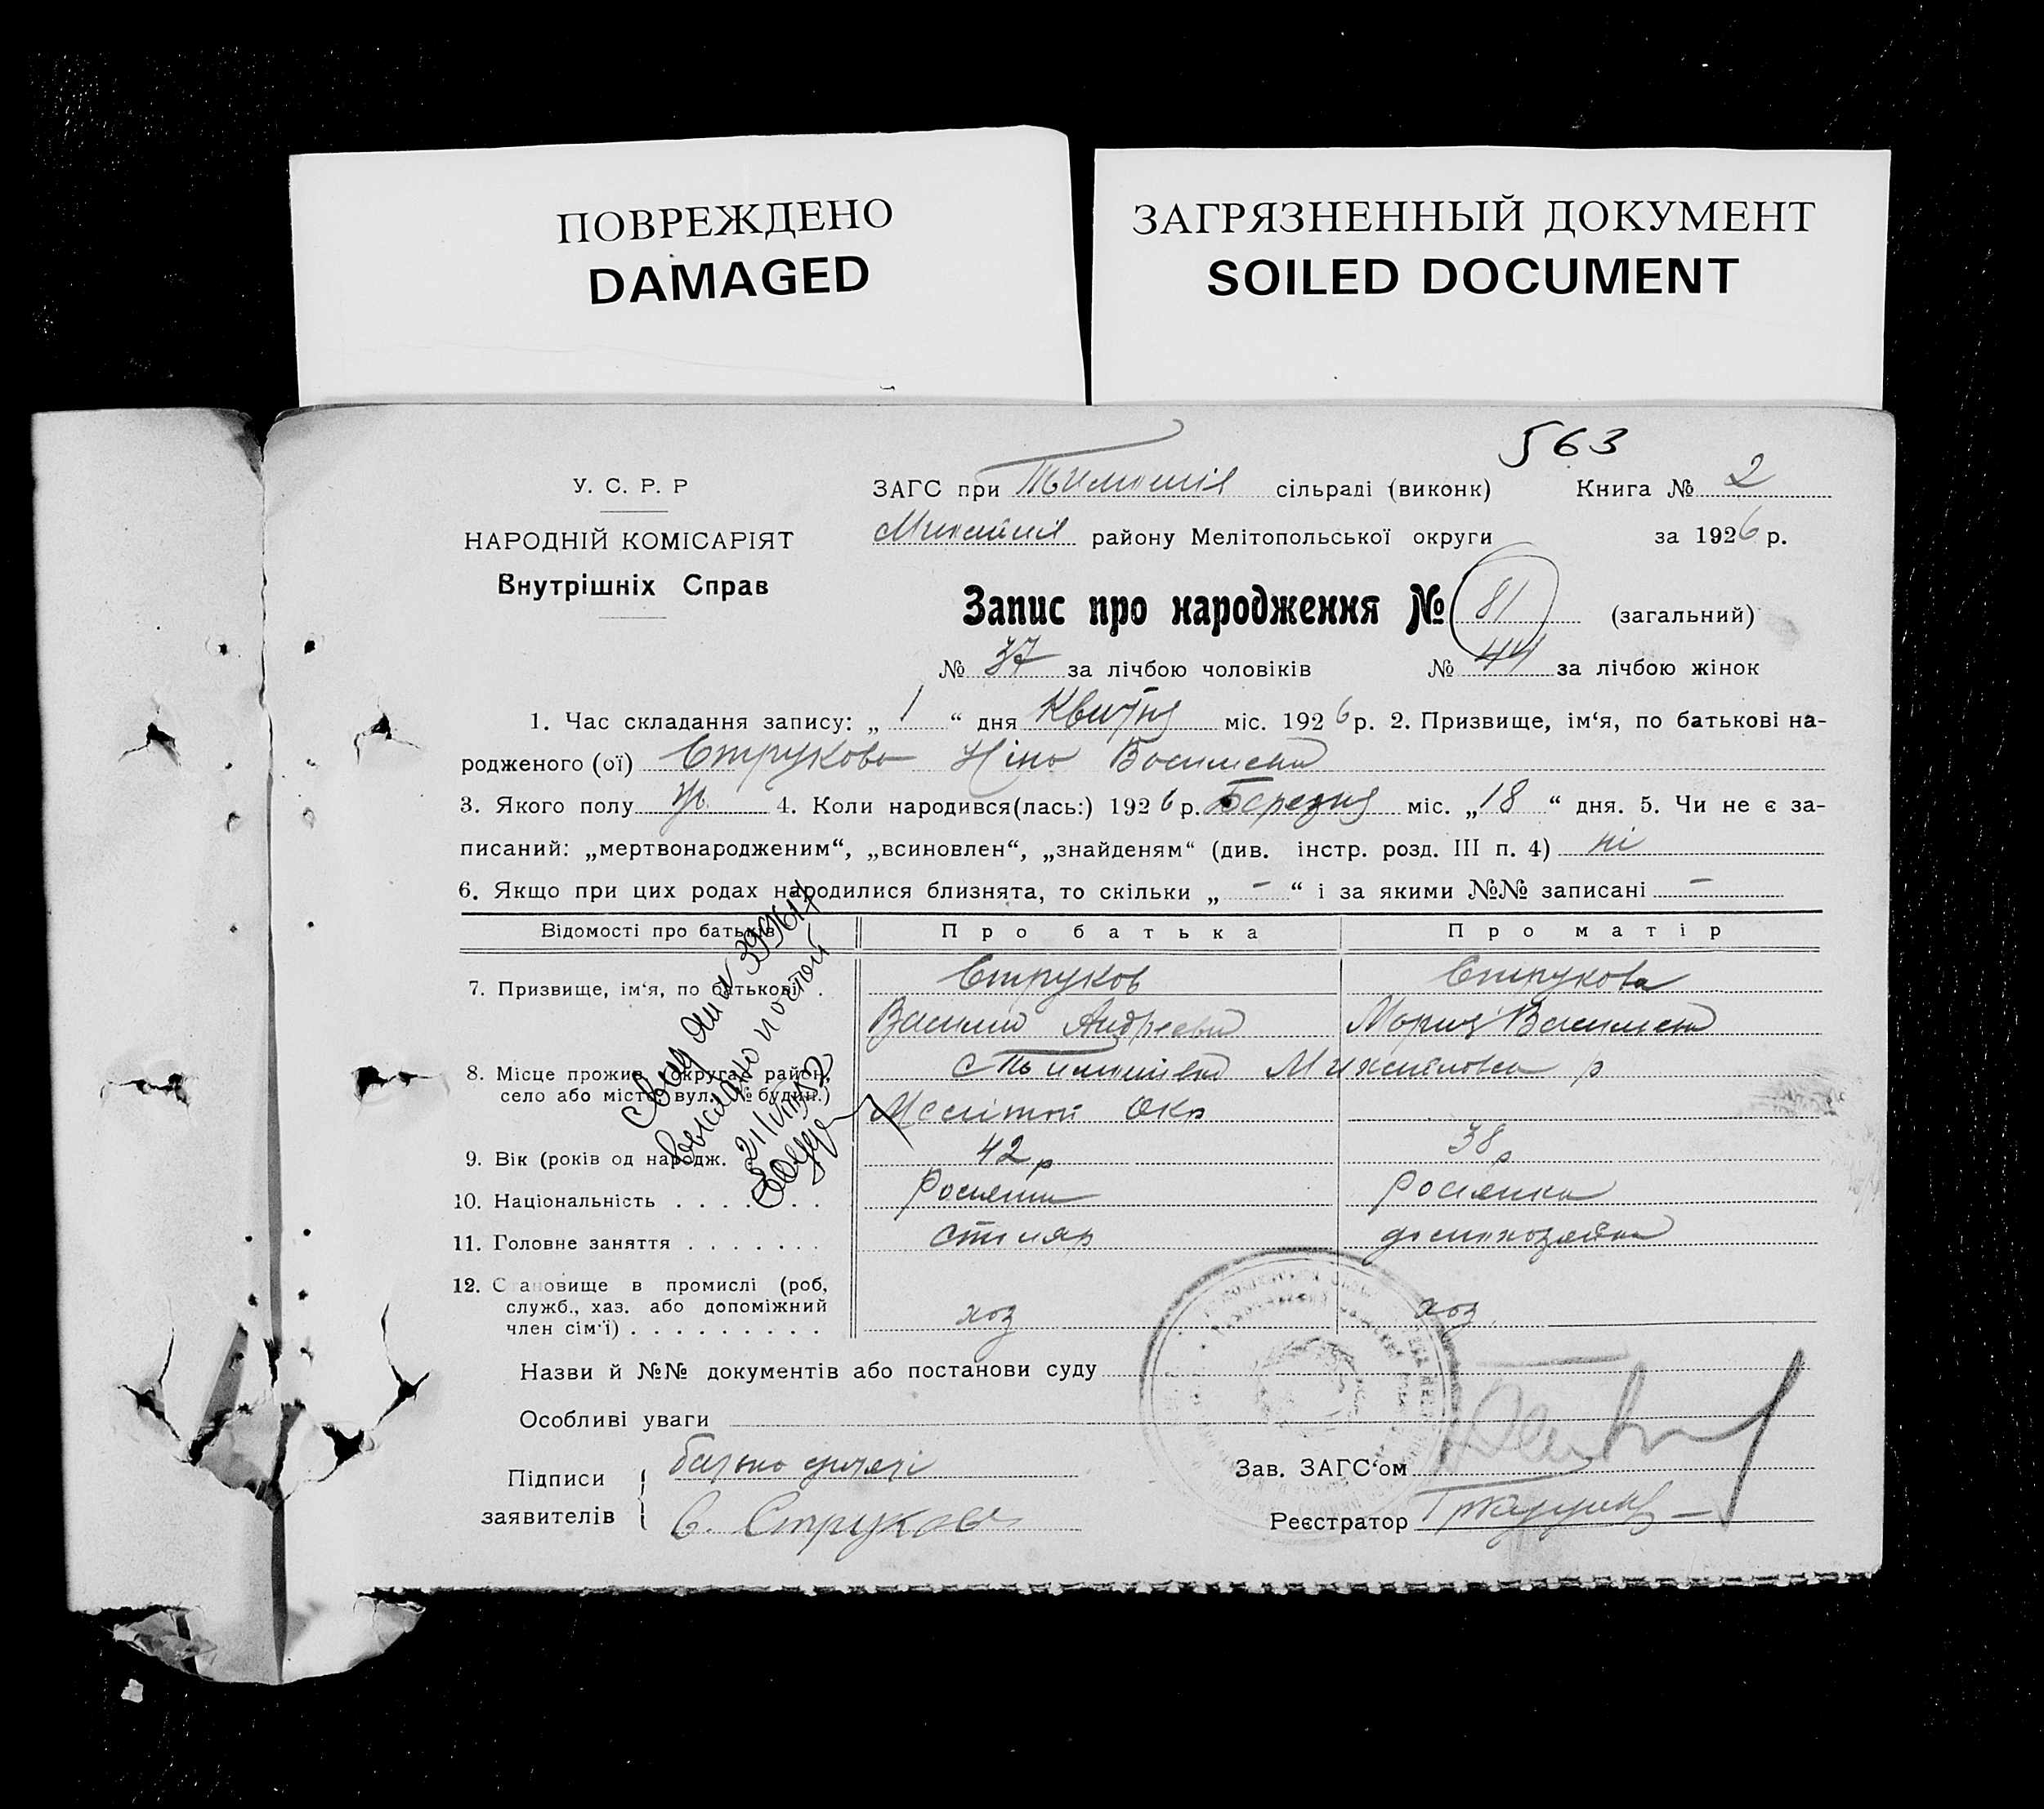 ПОВРЕЖДЕНО
DAMAGED
ЗАГРЯЗНЕННЫЙ ДОКУМЕНТ
SOILED DOCUMENT
563
У. С. Р. Р
НАРОДНІЙ КОМІСАРІЯТ
Внутрішніх Справ
ЗАГС при сільраді (виконк) Книга № 2
району Мелітопольської округи за 1926 р.
Запис про народження № 81 (загальний)
№ 37 за лічбою чоловіків № 44 за лічбою жінок
1. Час складання запису: „ 1 “ дня Квітня міс. 1926 р. 2. Призвище, ім‘я, по батькові на-
родженого (ої) Струкова Ніна Василєвна
3. Якого полу ж 4. Коли народився(лась:) 1926 р. Березня міс. „ 18 “ дня. 5. Чи не є за-
писаний: „мертвонародженим“, „всиновлен“, „знайденям“ (див. інстр. розд. III п. 4) ні
6. Якщо при цих родах народилися близнята, то скільки „ – “ і за якими №№ записані –
Відомості про батьків Про батька Про матір
7. Призвище, ім‘я, по батькові . Струков Струкова
Василий Андреевич Мария Василєвна
8. Місце прожив. (округа, район,
село або місто, вул. № будин.)
Меліт Окр
9. Вік (років од народж. 42 р 38 р
10. Національність . . . . . . . Росиянин Росиянка
11. Головне заняття . . . . . . . столяр домохозяйка
12. Становище в промислі (роб,
служб., хаз. або допоміжний
член сім‘ї) . . . . . . . . . хоз хоз
Назви й №№ документів або постанови суду
Особливі уваги
Підписи батько дитяти
заявителів В. Струков
Зав. ЗАГС‘ом
Реєстратор
выслано почтой